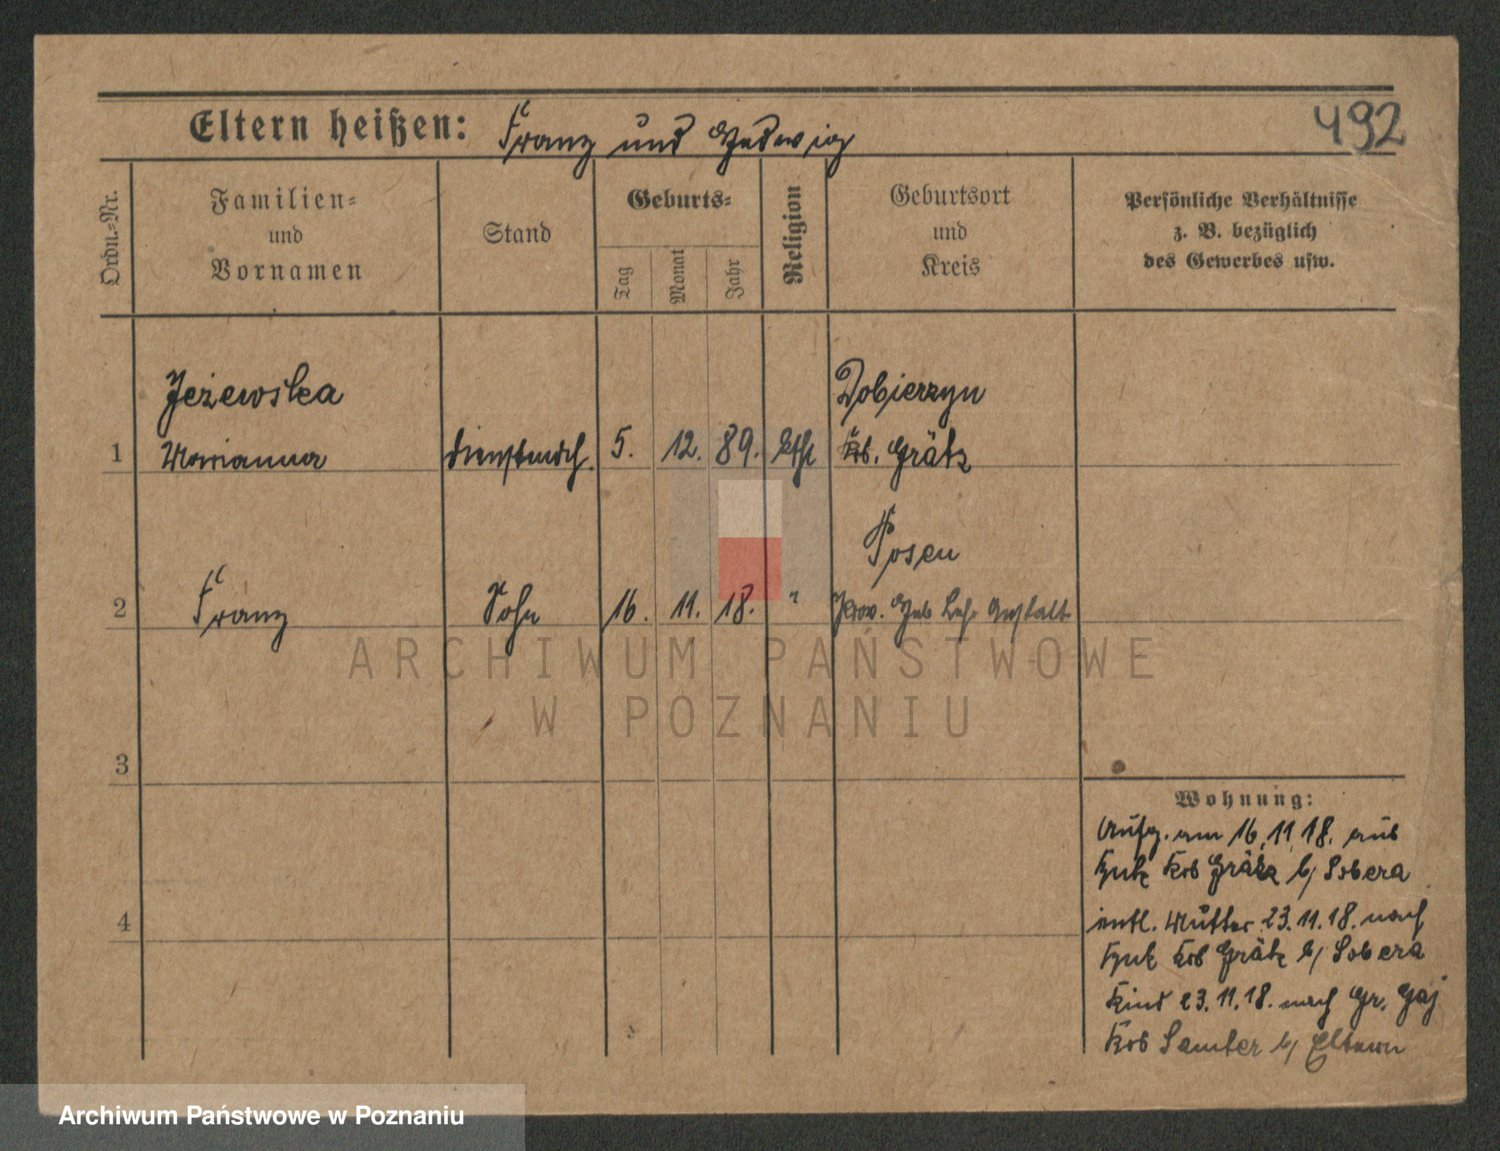 492
Eltern heißen: Franz und Hedwig
Ordn.-Nr.
Familien-
und
Vornamen
Stand
Geburts-
Tag
Monat
Jahr
Religion
Geburtsort
und
Kreis
Persönliche Verhältnisse
z. B. bezüglich
des Gewerbes usw.
Jeżewska
Dobierzyn
1 Marianna Dienstmdch. 5. 12. 89. kth Krs. Grätz
Posen
2 Franz Sohn 16. 11. 18. " Prov. Heb Lehr Anstalt
3
4
Wohnung:
Aufg. am 16.11.18. aus
Krs Grätz b/ Sobera
entl. Mutter 23.11.18. nach
Krs Grätz b/ Sobera
Kind 23.11.18. nach Gr. Gaj
Krs Samter b/ Eltern
ARCHIWUM PAŃSTWOWE
W POZNANIU
Archiwum Państwowe w Poznaniu